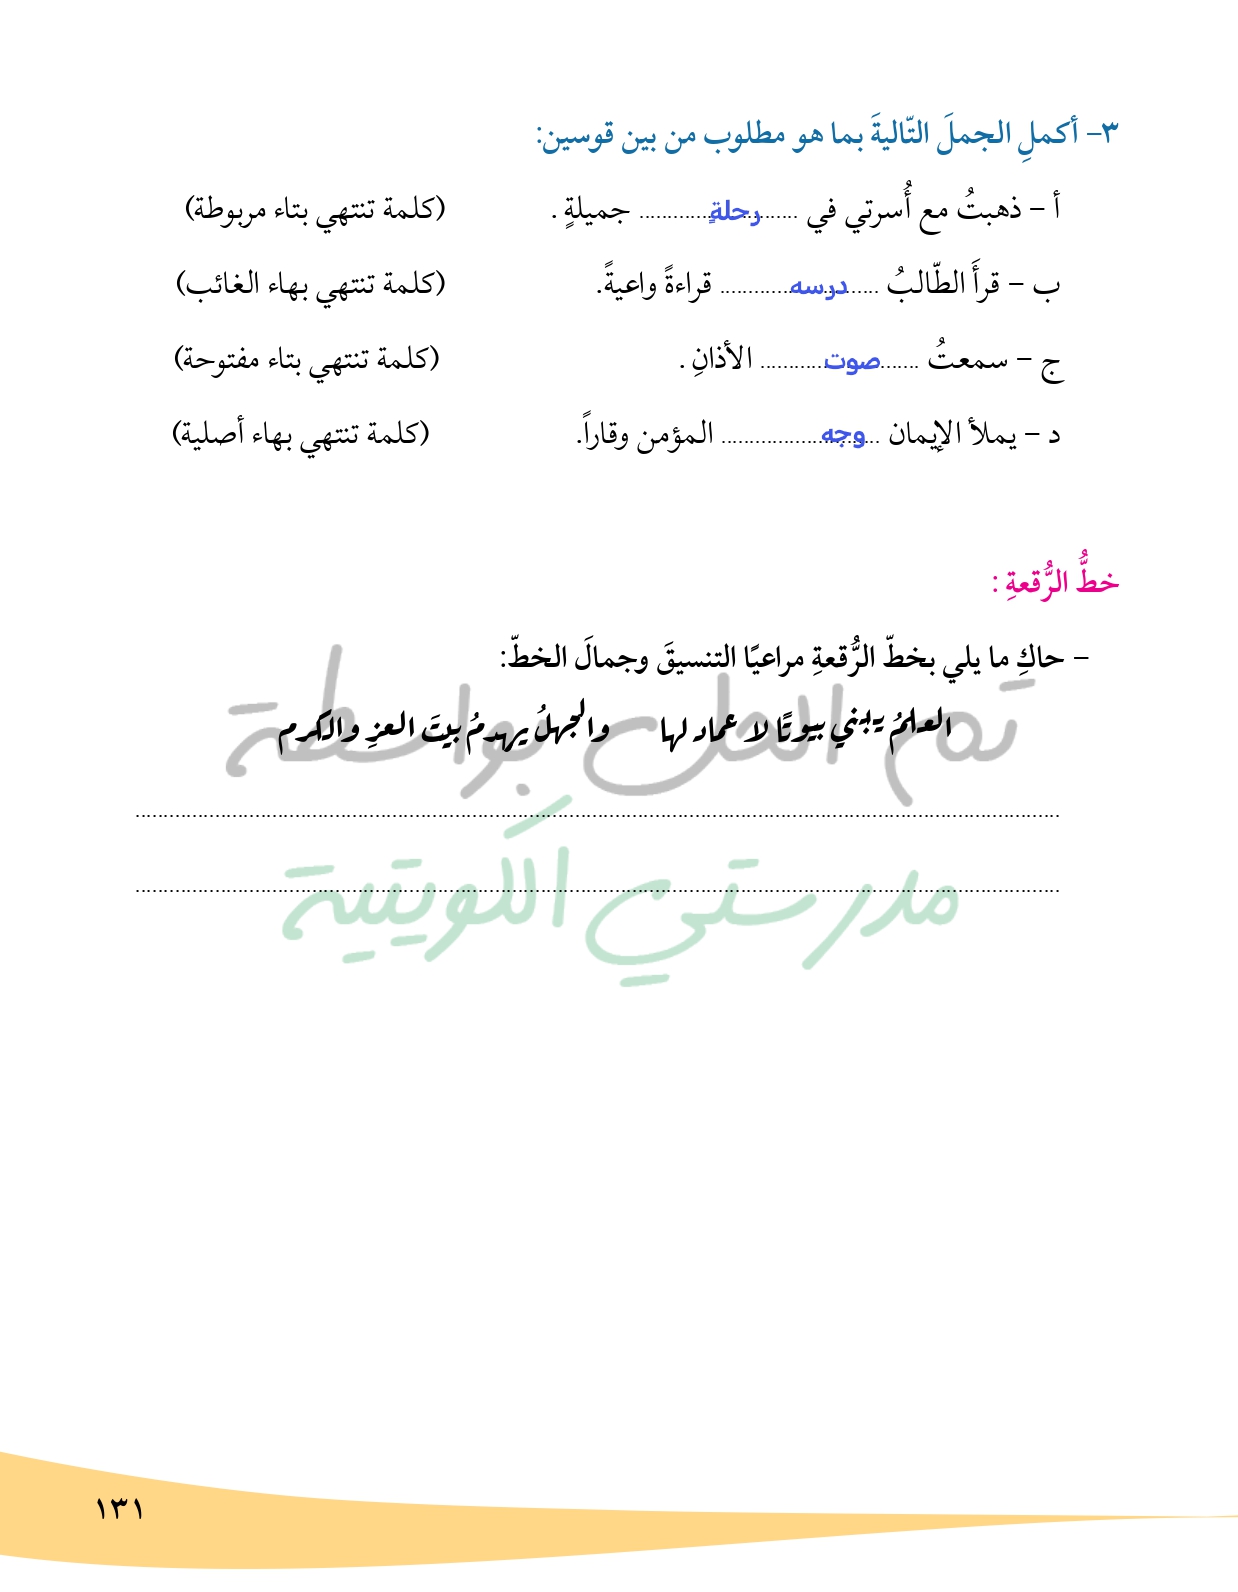 ٣- أكملِ الجملَ التّاليةَ بما هو مطلوب من بين قوسين:
أ – ذهبتُ مع أُسرتي في ........ رحلةٍ ........ جميلةٍ . (كلمة تنتهي بتاء مربوطة)
ب – قرأَ الطّالبُ ........ درسه ........ قراءةً واعيةً. (كلمة تنتهي بهاء الغائب)
ج – سمعتُ ........ صوت ........ الأذانِ . (كلمة تنتهي بتاء مفتوحة)
د – يملأ الإيمان ........ وجه ........ المؤمن وقاراً. (كلمة تنتهي بهاء أصلية)
خطُّ الرُّقعةِ :
– حاكِ ما يلي بخطّ الرُّقعةِ مراعيًا التنسيقَ وجمالَ الخطّ:
العلمُ يبني بيوتًا لا عماد لها والجهلُ يهدمُ بيتَ العزِ والكرم
تم الحل بواسطة
مدرستي الكويتية
١٣١